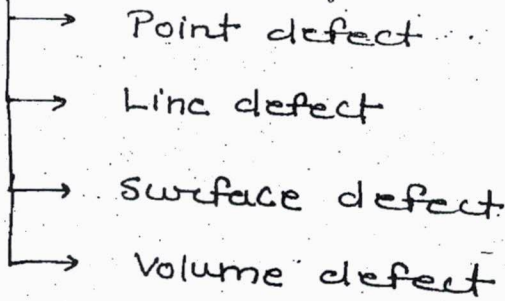 Point defect
Line defect
Surface defect
Volume defect